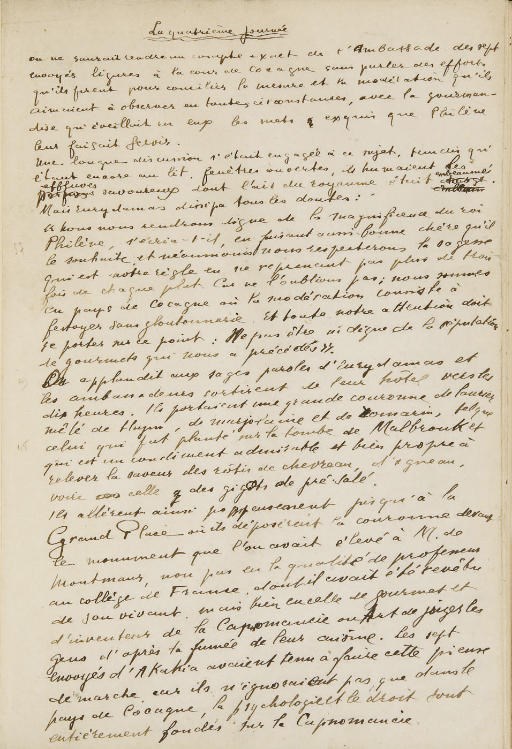 La quatrième journée
on ne saurait rendre un compte exact de l'Ambassade des sept
envoyés ligures à la cour de Cocagne sans parler des efforts
qu'ils firent pour concilier la mesure et la modération qu'ils
aimaient à observer en toutes circonstances, avec la gourman-
dise qu'éveillait en eux les mets exquis que Philène
leur faisait servir.
Une longue discussion s'était engagée à ce sujet, tandis qu'
étant encore au lit, fenêtres ouvertes, ils humaient les
effluves savoureux dont l'air du royaume était embaumé
Mais Eurydamas dissipa tous les doutes :
« nous nous rendrons digne de la magnificence du roi
Philène, s'écria-t-il, en faisant aussi bonne chère qu'il
le souhaite et néanmoins nous respecterons la sagesse
qui est notre règle en ne reprenant pas plus de trois
fois de chaque plat. Car ne l'oublions pas, nous sommes
en pays de Cocagne où la modération consiste à
festoyer sans gloutonnerie. Et toute notre attention doit
se porter sur ce point : Ne pas être indigne de la réputation
de gourmets qui nous a précédés ».
On applaudit aux sages paroles d'Eurydamas et
les ambassadeurs sortirent de leur hôtel vers les
dix heures. Ils portaient une grande couronne de laurier
mêlé de thym, de marjolaine et de romarin, tel que
celui qui fut planté sur la tombe de Malbrouk et
qui est un condiment admirable et bien propre à
relever la saveur des rôtis de chevreau, d'agneau,
voire celle des gigots de pré-salé.
Ils allèrent ainsi pompeusement jusqu'à la
Grand Place où ils déposèrent la couronne devant
le monument que l'on avait élevé à M. de
Montmaur, non pas en la qualité de professeur
au collège de France, dont il avait été revêtu
de son vivant, mais bien en celle de gourmet et
d'inventeur de la Capnomancie ou Art de juger les
gens d'après la fumée de leur cuisine. Les sept
envoyés d'Akakia avaient tenu à faire cette pieuse
démarche car ils n'ignoraient pas que dans le
pays de Cocagne, la psychologie et le droit sont
entièrement fondés sur la Capnomancie.